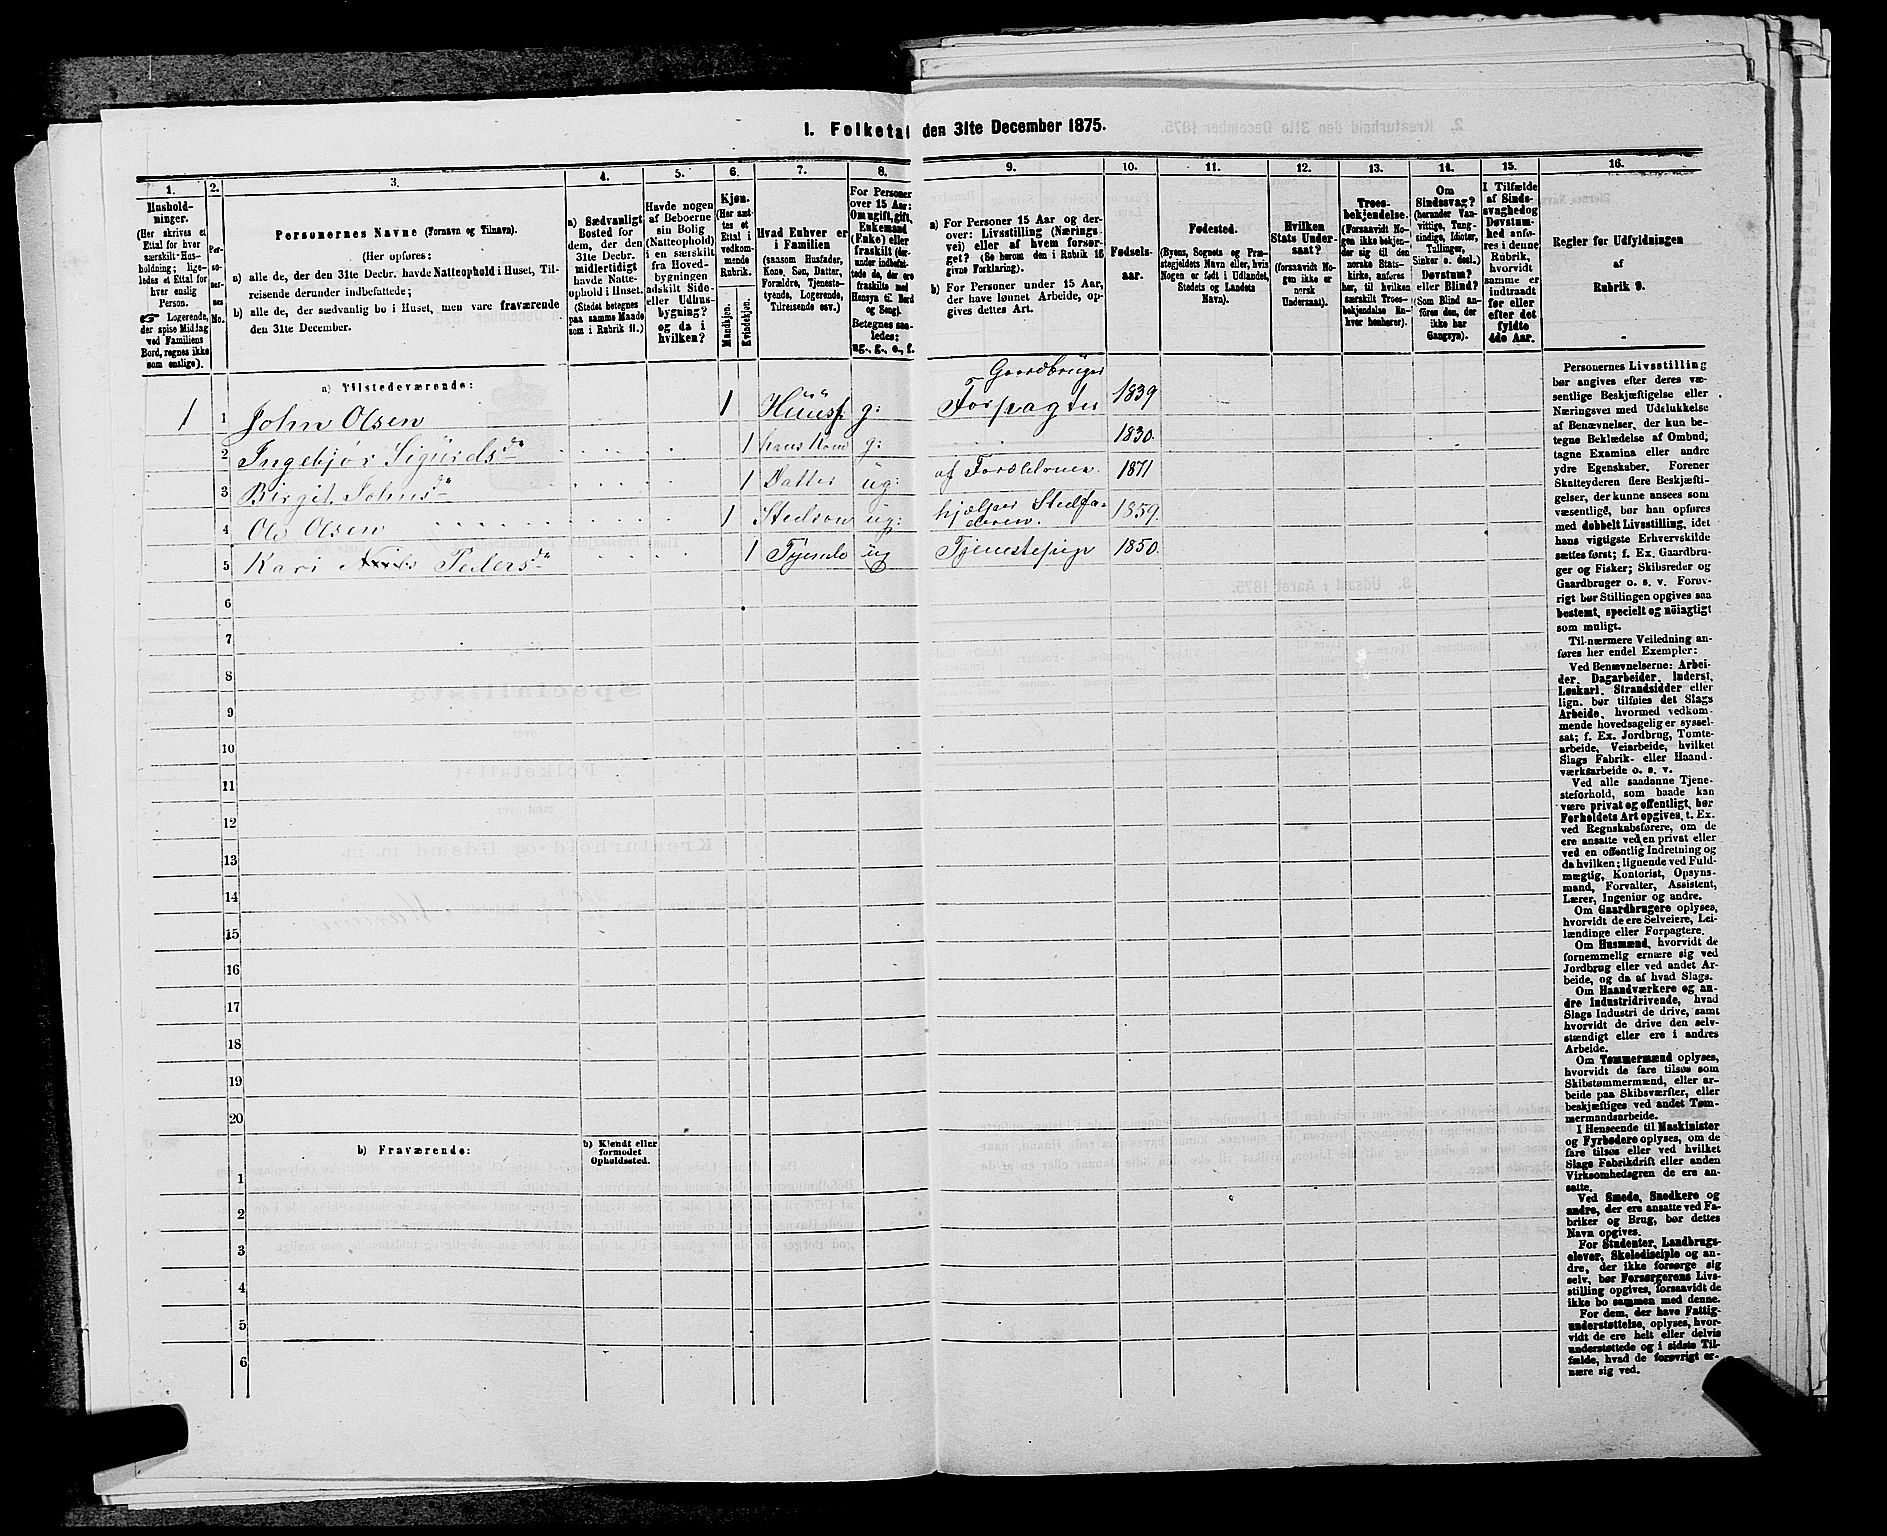 I. Folketal den 31te December 1875.
1.
2.
3.
4.
5.
6.
7.
8.
9.
10.
11.
12.
13.
14.
15.
16.
Hushold-
ninger.
(Her skrives et
Ettal for hver
særskilt Hus-
holdning; lige-
ledes et Ettal for
hver enslig
Person.
☞ Logerende,
der spise Middag
ved Familiens
Bord, regnes ikke
som enslige).
Per-
so-
ner-
nes
No.
Personernes Navne (Fornavn og Tilnavn).
(Her opføres:
a) alle de, der den 31te Decbr. havde Natteophold i Huset, Til-
reisende derunder indbefattede;
b) alle de, der sædvanlig bo i Huset, men vare fraværende
den 31te December.
a) Sædvanligt
Bosted for
dem, der den
31te Decbr.
midlertidigt
havde Natte-
ophold i Huset.
(Stedet betegnes
paa samme Maade
som i Rubrik 11.)
Havde nogen
af Beboerne
sin Bolig
(Natteophold)
i en særskilt
fra Hoved-
bygningen
adskilt Side-
eller Udhus-
bygning?
og da i
hvilken?
Kjøn.
(Her sæt-
tes et
Ettal i
vedkom-
mende
Rubrik.
Mandkjøn.
Kvindekjøn.
Hvad Enhver er
i Familien
(saasom Husfader,
Kone, Søn, Datter,
Forældre, Tjeneste-
tyende, Logerende,
Tilreisende osv.)
For Personer
over 15 Aar:
Om ugift, gift,
Enkemand
(Enke) eller
fraskilt (der-
under indbefat-
tede de, der ere
fraskilte med
Hensyn til Bord
og Seng).
Betegnes saa-
ledes:
ug., g., e., f.
a) For Personer 15 Aar og der-
over: Livsstilling (Nærings-
vei) eller af hvem forsør-
get? (Se herom den i Rubrik 16
givne Forklaring).
b) For Personer under 15 Aar,
der have lønnet Arbeide, op-
gives dettes Art.
Fødsels-
aar.
Fødested.
(Byens, Sognets og Præ-
stegjeldets Navn eller, hvis
Nogen er født i Udlandet,
Stedets og Landets
Navn).
Hvilken
Stats Under-
saat?
(forsaavidt No-
gen ikke er
norsk
Undersaat).
Troes-
bekjendelse.
(Forsaavidt No-
gen ikke bekjen-
der sig til den
norske Stats-
kirke, anføres
her, til hvilken
særskilt Troes-
bekjendelse En-
hver henhører).
Om
Sindssvag?
(herunder Van-
vittige, Tung-
sindige, Idioter,
Tullinger,
Sinker o. desl.)
Døvstum?
eller Blind?
(Som Blind an-
føres den, der
ikke har
Gangsyn).
I Tilfælde
af Sinds-
svaghed og
Døvstum-
hed anfø-
res i denne
Rubrik,
hvorvidt
samme er
indtraadt
før eller
efter det
fyldte
4de Aar.
Regler for Udfyldningen
af
Rubrik 9.
a) Tilstedeværende:
Gaardbruger
1 1 John Olsen 1 Huusf g: Forpagter 1839
2 Ingebjør Sigurdsdr 1 hans Kone g: 1830.
3 Birgit Johnsdr 1 Datter ug: af Forældrene. 1871
4 Ole Olsen 1 Stedsøn ug: hjælper Stedfa-
deren. 1859.
5 Kari Nils Pedersdr 1 Tyende ug Tjenestepige 1850.
6
7
8
9
10
11
12
13
14
15
16
17
18
19
20
b) Fraværende:
b) Kjendt eller
formodet
Opholdssted.
1
2
3
4
5
6
Personernes Livsstilling
bør angives efter deres væ-
sentlige Beskjæftigelse eller
Næringsvei med Udelukkelse
af Benævnelser, der kun be-
tegne Beklædelse af Ombud,
tagne Examina eller andre
ydre Egenskaber. Forener
Skatteyderen flere Beskjæfti-
gelser, der kunne ansees som
væsentlige, bør han opføres
med dobbelt Livsstilling, idet
hans vigtigste Erhvervskilde
sættes først; f. Ex. Gaardbru-
ger og Fisker; Skibsreder og
Gaardbruger o. s. v. Forøv-
rigt bør Stillingen opgives saa
bestemt, specielt og nöiagtigt
som muligt.
Til nærmere Veiledning an-
føres her endel Exempler:
Ved Benævnelserne: Arbei-
der, Dagarbeider, Inderst,
Løskarl, Strandsidder eller
lign. bør tilføies det Slags
Arbeide, hvormed vedkom-
mende hovedsagelig er syssel-
sat; f. Ex. Jordbrug, Tomte-
arbeide, Veiarbeide, hvilket
Slags Fabrik- eller Haand-
værksarbeide o. s. v.
Ved alle saadanne Tjene-
steforhold, som baade kan
være privat og offentligt, bør
Forholdets Art opgives, t. Ex.
ved Regnskabsførere, om de
ere ansatte ved en privat eller
ved en offentlig Indretning og
da hvilken; lignende ved Fuld-
mægtig, Kontorist, Opsyns-
mand, Forvalter, Assistent,
Lærer, Ingeniør og andre.
Om Gaardbrugere oplyses,
hvorvidt de ere Selveiere, Lei-
lændinge eller Forpagtere.
Om Husmænd, hvorvidt de
fornemmelig ernære sig ved
Jordbrug eller ved andet Ar-
beide, og da af hvad Slags.
Om Haandværkere og an-
dre Industridrivende, hvad
Slags Industri de drive, samt
hvorvidt de drive den selv-
stændigt eller ere i andres
Arbeide.
Om Tømmermænd oplyses,
hvorvidt de fare tilsøs som
Skibstømmermænd, eller ar-
beide paa Skibsværfter, eller
beskjæftiges ved andet Tøm-
mermandsarbeide.
I Henseende til Maskinister
og Fyrbødere oplyses, om de
fare tilsøs eller ved hvilket
Slags Fabrikdrift eller anden
Virksomhedsgren de ere an-
satte.
Ved Smede, Snedkere og
andre, der ere ansatte ved Fa-
briker og Brug, bør dettes
Navn opgives.
For Studenter, Landbrugs-
elever, Skoledisciple og an-
dre, der ikke forsørge sig
selv, bør Forsørgerens Livs-
stilling opgives, forsaavidt de
ikke bo sammen med denne.
For dem, der have Fattig-
understøttelse, oplyses, hvor-
vidt de ere helt eller delvis
understøttede og i sidste Til-
fælde, hvad de forøvrigt er-
nære sig ved.